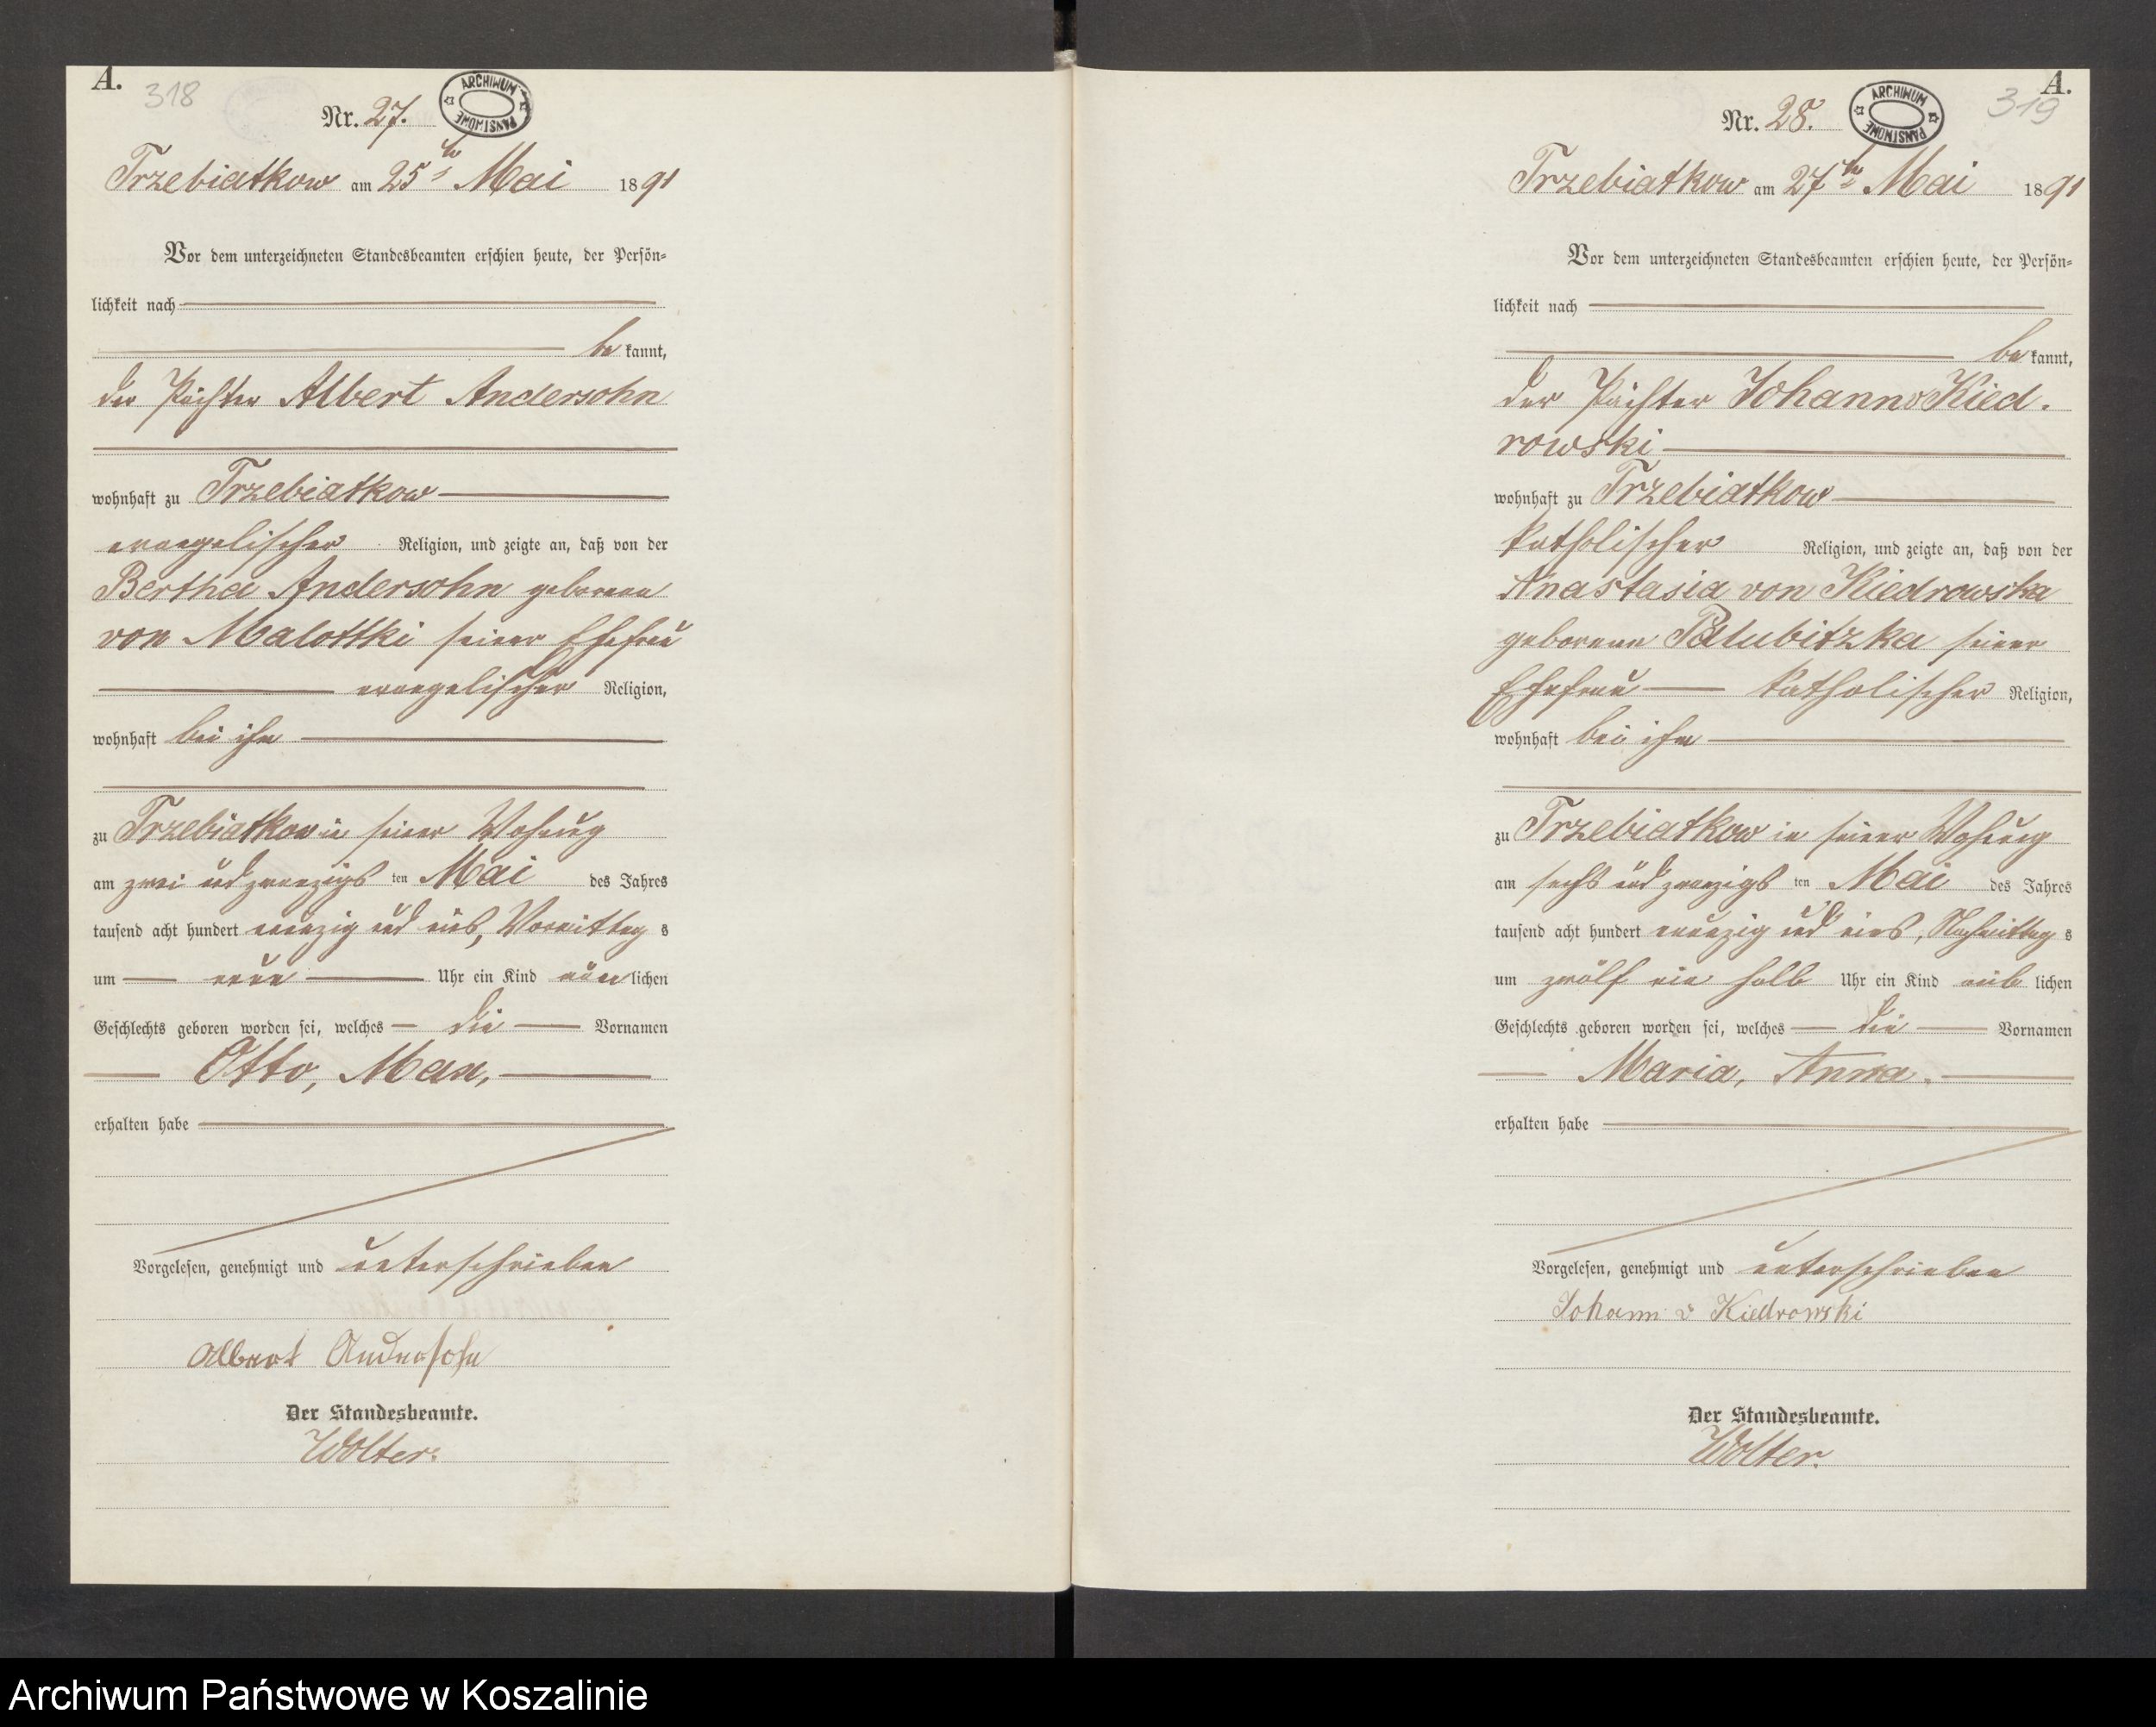 A.
318
Nr. 27.
ARCHIWUM PAŃSTWOWE
Trzebiatkow am 25ten Mai 1891
Vor dem unterzeichneten Standesbeamten erschien heute, der Persön=
lichkeit nach
be kannt,
der Pächter Albert Andersohn
wohnhaft zu Trzebiatkow
evangelischer Religion, und zeigte an, daß von der
Bertha Andersohn geborene
von Malottki seiner Ehefrau
evangelischer Religion,
wohnhaft bei ihm
zu Trzebiatkow in seiner Wohnung
am zwei und zwanzigs ten Mai des Jahres
tausend acht hundert neunzig und eins, Vormittag s
um neun Uhr ein Kind männ lichen
Geschlechts geboren worden sei, welches die Vornamen
Otto, Max,
erhalten habe
Vorgelesen, genehmigt und unterschrieben
Albert Andersohn
Der Standesbeamte.
Wolter.
A.
319
Nr. 28.
ARCHIWUM PAŃSTWOWE
Trzebiatkow am 27ten Mai 1891
Vor dem unterzeichneten Standesbeamten erschien heute, der Persön=
lichkeit nach
be kannt,
der Pächter Johann v Kied.
rowski
wohnhaft zu Trzebiatkow
katholischer Religion, und zeigte an, daß von der
Anastasia von Kiedrowska
geborene Palubitzka seiner
Ehefrau katholischer Religion,
wohnhaft bei ihm
zu Trzebiatkow in seiner Wohnung
am sechs und zwanzigs ten Mai des Jahres
tausend acht hundert neunzig und eins, Nachmittag s
um zwölf ein halb Uhr ein Kind weib lichen
Geschlechts geboren worden sei, welches die Vornamen
Maria, Anna.
erhalten habe
Vorgelesen, genehmigt und unterschrieben
Johann v Kiedrowski
Der Standesbeamte.
Wolter.
Archiwum Państwowe w Koszalinie